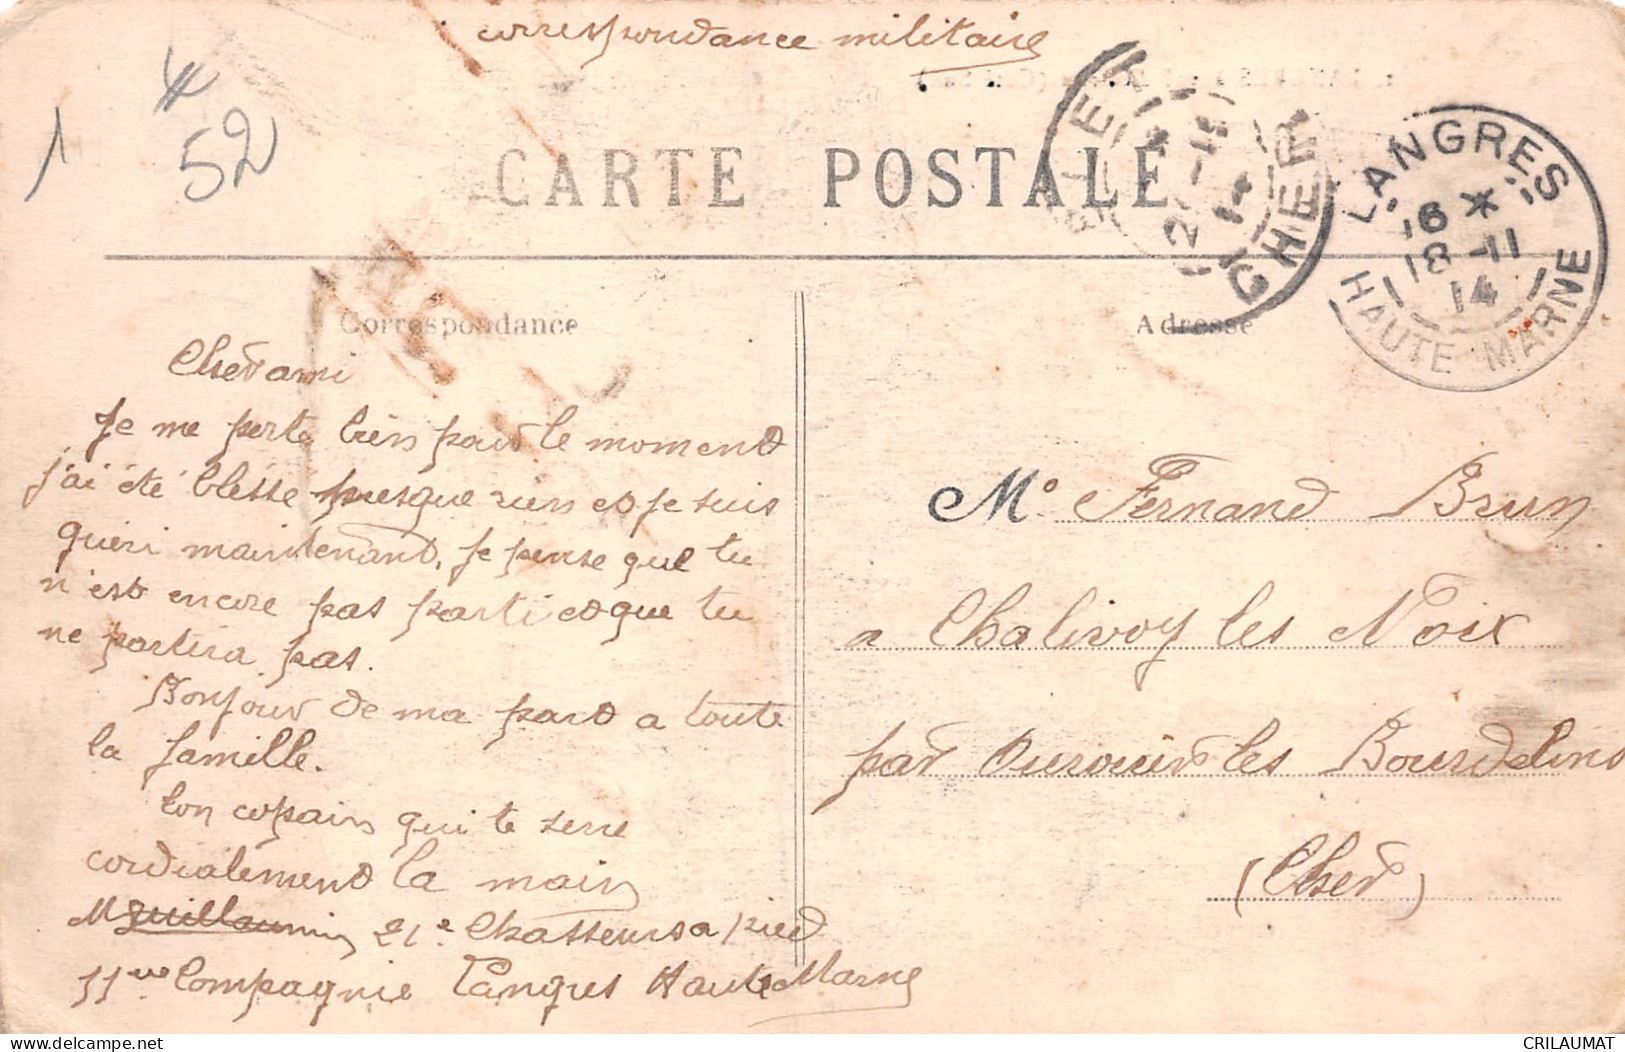 correspondance militaire
1
52
CARTE POSTALE
CHER
LANGRES
16 *
18 -11
14
HAUTE MARNE
Correspondance
Adresse
Cher ami
Je me porte bien pour le moment
j'ai été blessé presque rien et je suis
guéri maintenant, je pense que tu
n'est encore pas parti et que tu
ne partira pas.
Bonjour de ma part a toute
la famille.
Ton copain qui te serre
cordialement la main
M Guillaumin 21e Chasseurs a pied
11eme Compagnie Langres Haute Marne
Mr Fernand Brun
a Chalivoy les Noix
par Ourouer les Bourdelins
(Cher)
CRILAUMAT